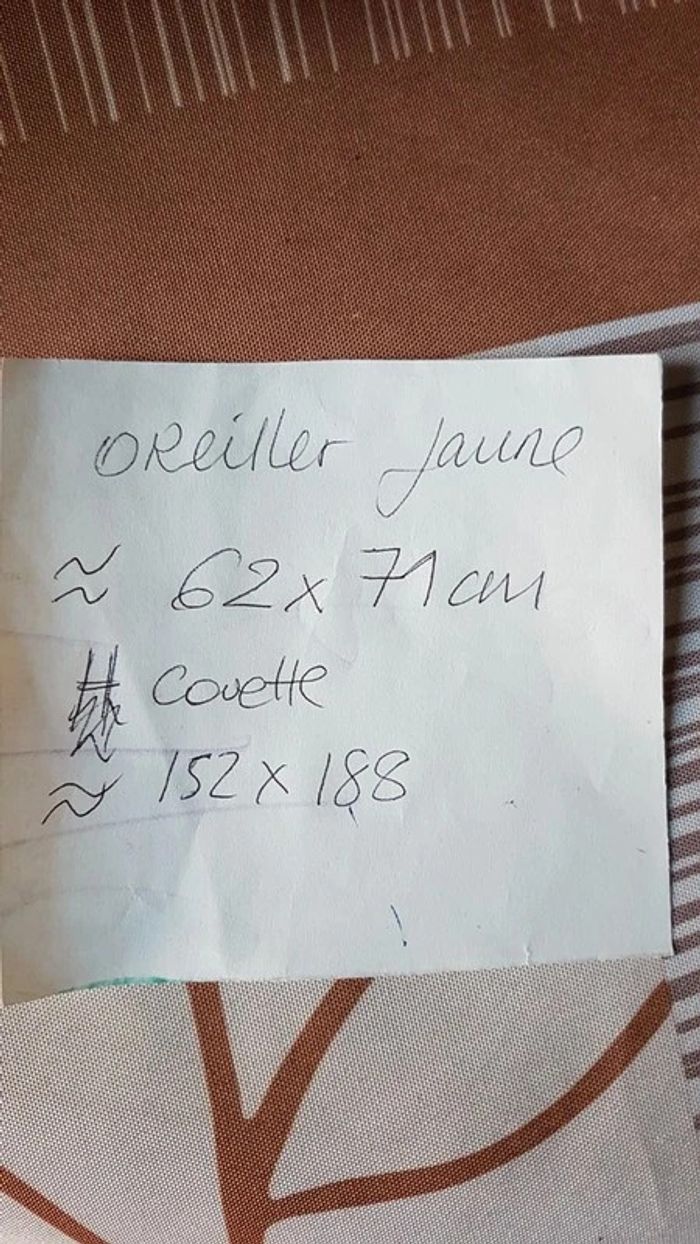 OReiller Jaune
≈ 62 x 71 cm
Couette
≈ 152 x 188